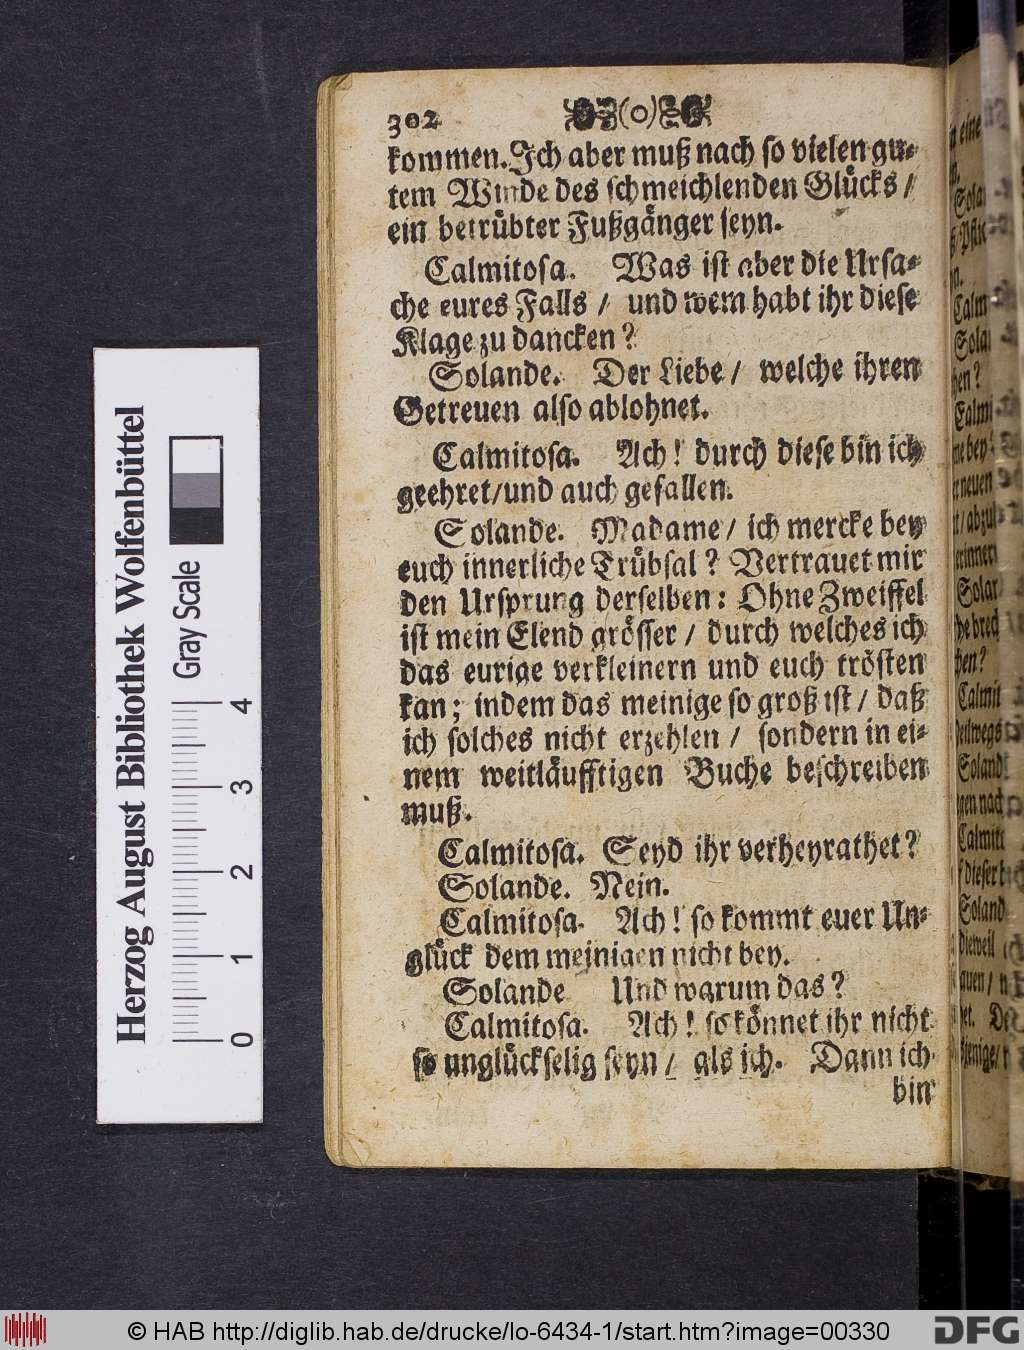 302 (o)
kommen. Ich aber muß nach so vielen gu-
tem Winde des schmeichlenden Glücks /
ein betrübter Fußgänger seyn.
Calmitosa. Was ist aber die Ursa-
che eures Falls / und wem habt ihr diese
Klage zu dancken?
Solande. Der Liebe / welche ihren
Getreuen also ablohnet.
Calmitosa. Ach! durch diese bin ich
geehret / und auch gefallen.
Solande. Madame / ich mercke bey
euch innerliche Trübsal? Vertrauet mir
den Ursprung derselben: Ohne Zweiffel
ist mein Elend grösser / durch welches ich
das eurige verkleinern und euch trösten
kan; indem das meinige so groß ist / daß
ich solches nicht erzehlen / sondern in ei-
nem weitläufftigen Buche beschreiben
muß.
Calmitosa. Seyd ihr verheyrathet?
Solande. Nein.
Calmitosa. Ach! so kommt euer Un-
glück dem meinigen nicht bey.
Solande Und warum das?
Calmitosa. Ach! so könnet ihr nicht
so unglückselig seyn / als ich. Dann ich
bin
Herzog August Bibliothek Wolfenbüttel
Gray Scale
0 1 2 3 4
© HAB http://diglib.hab.de/drucke/lo-6434-1/start.htm?image=00330
DFG